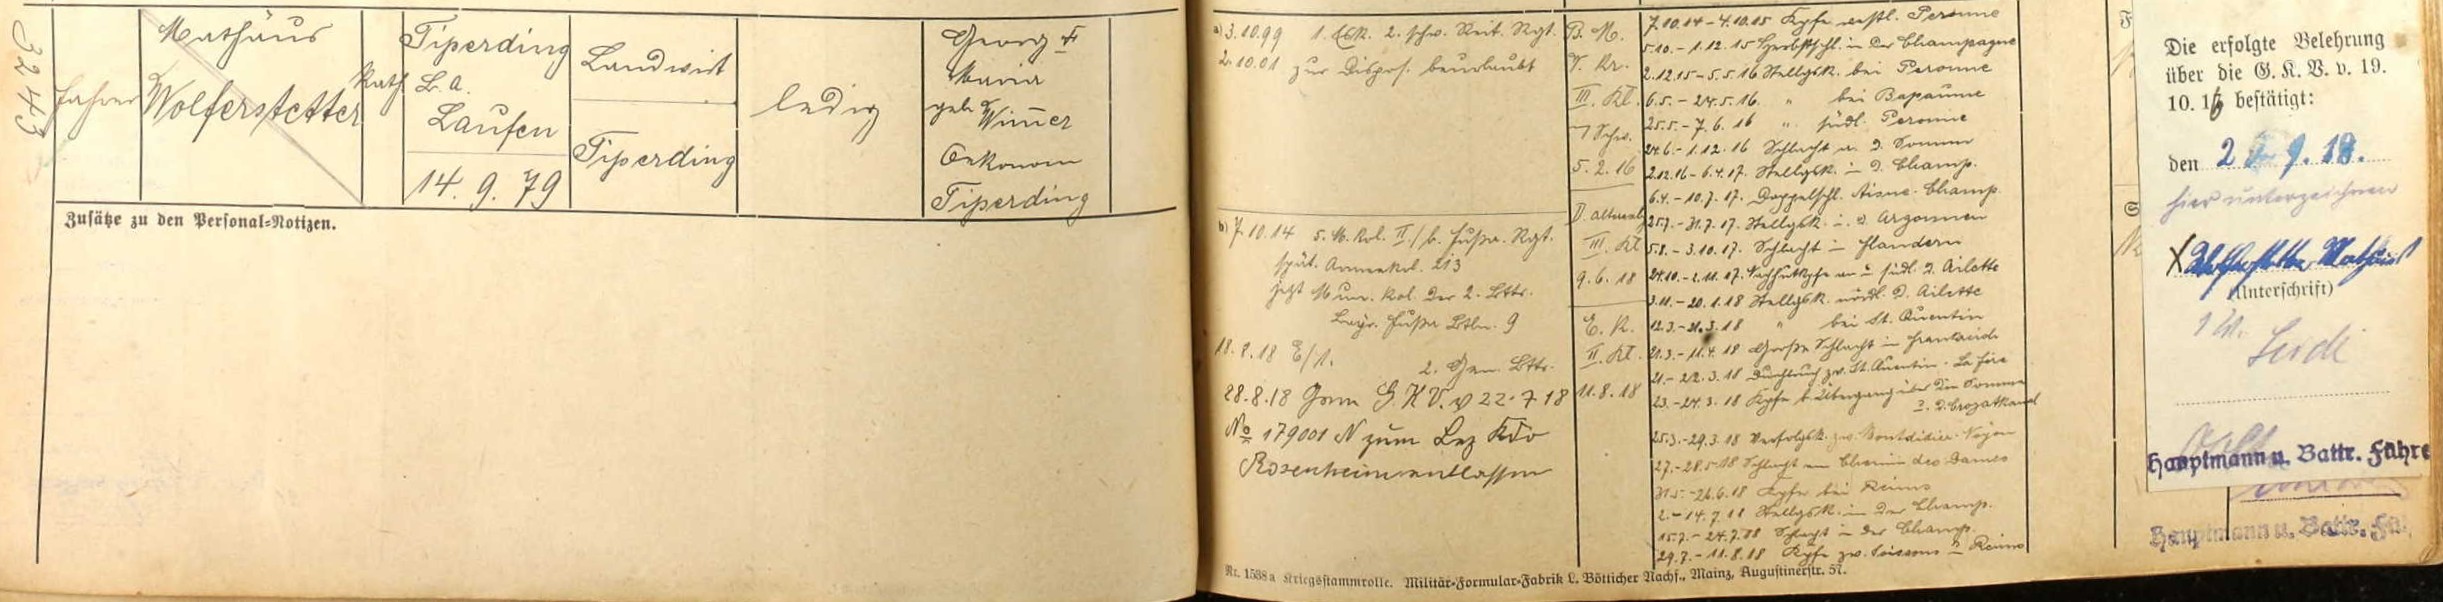 3243
Fahrer
Mathäus
Wolferstetter
kath.
Tiperding
B. A.
Laufen
14. 9. 79
Landwirt
Tiperding
ledig
Georg †
Maria
geb. Wimer
Oekonom
Tiperding
Zusätze zu den Personal-Notizen.
a) 3.10.99 1. Esk. 2. schw. Reit. Rgt.
2.10.01 zur Dispos. beurlaubt
b) 7.10.14 5. M. Kol. II./b. Fußa. Rgt.
spät. Armeekol. 213
jetzt Mun. Kol. der 2. Bttr.
Bayr. Fußa Batln. 9
18.8.18 E/1. 2. Gen. Bttr.
28.8.18 Gem G.K.V. v 22.7.18
No 179001 N zum Bez Kdo
Rosenheim entlassen
B. M.
V. Kr.
III. Kl.
5. 2. 16
III. Kl
9. 6. 18
E. K.
II. Kl.
11. 8. 18
7.10.14 – 4.10.15 Kpfe westl. Peronne
5.10. – 1.12.15 Herbstschl. in der Champagne
2.12.15 – 5.5.16 Stellgsk. bei Peronne
6.5. – 24.5.16 " bei Bapaume
25.5. – 7.6.16 " südl. Peronne
24.6. – 1.12.16 Schlacht a. d. Somme
2.12.16 – 6.4.17. Stellgsk. i. d. Champ.
6.4. – 10.7.17. Doppelschl. Aisne-Champ.
25.7. – 31.7.17. Stellgsk. i. d. Argonnen
5.8. – 3.10.17. Schlacht in Flandern
24.10. – 2.11.17. Nachhutkpfe an u. südl. d. Ailette
3.11. – 20.1.18 Stellgsk. nördl. d. Ailette
12.3. – 21.3.18 " bei St. Quentin
21.3. – 11.4.18 Große Schlacht in Frankreich
21. – 22.3.18 Durchbruch zw. St. Quentin - La Fère
23. – 24.3.18 Kpfe b. Übergang über die Somme
u. d. Crozatkanal
25.3. – 29.3.18 Verfolgsk. zw. Montdidier - Noyon
27. – 28.5.18 Schlacht am Chemin des Dames
31.5. – 26.6.18 Kpfe bei Reims
2. – 14.7.18 Stellgsk. in der Champ.
15.7. – 24.7.18 Schlacht in der Champ.
29.7. – 11.8.18 Kpfe zw. Soissons u. Reims
Nr. 1538a Kriegsstammrolle. Militär-Formular-Fabrik L. Bötticher Nachf., Mainz, Augustinerstr. 57.
Die erfolgte Belehrung
über die G. K. V. v. 19.
10. 16 bestätigt:
den 2. 9. 18.
hier unterzeichnen
X Wolferstetter Mathäus
(Unterschrift)
Hauptmann u. Battr. Führe
Hauptmann u. Battr. Fü